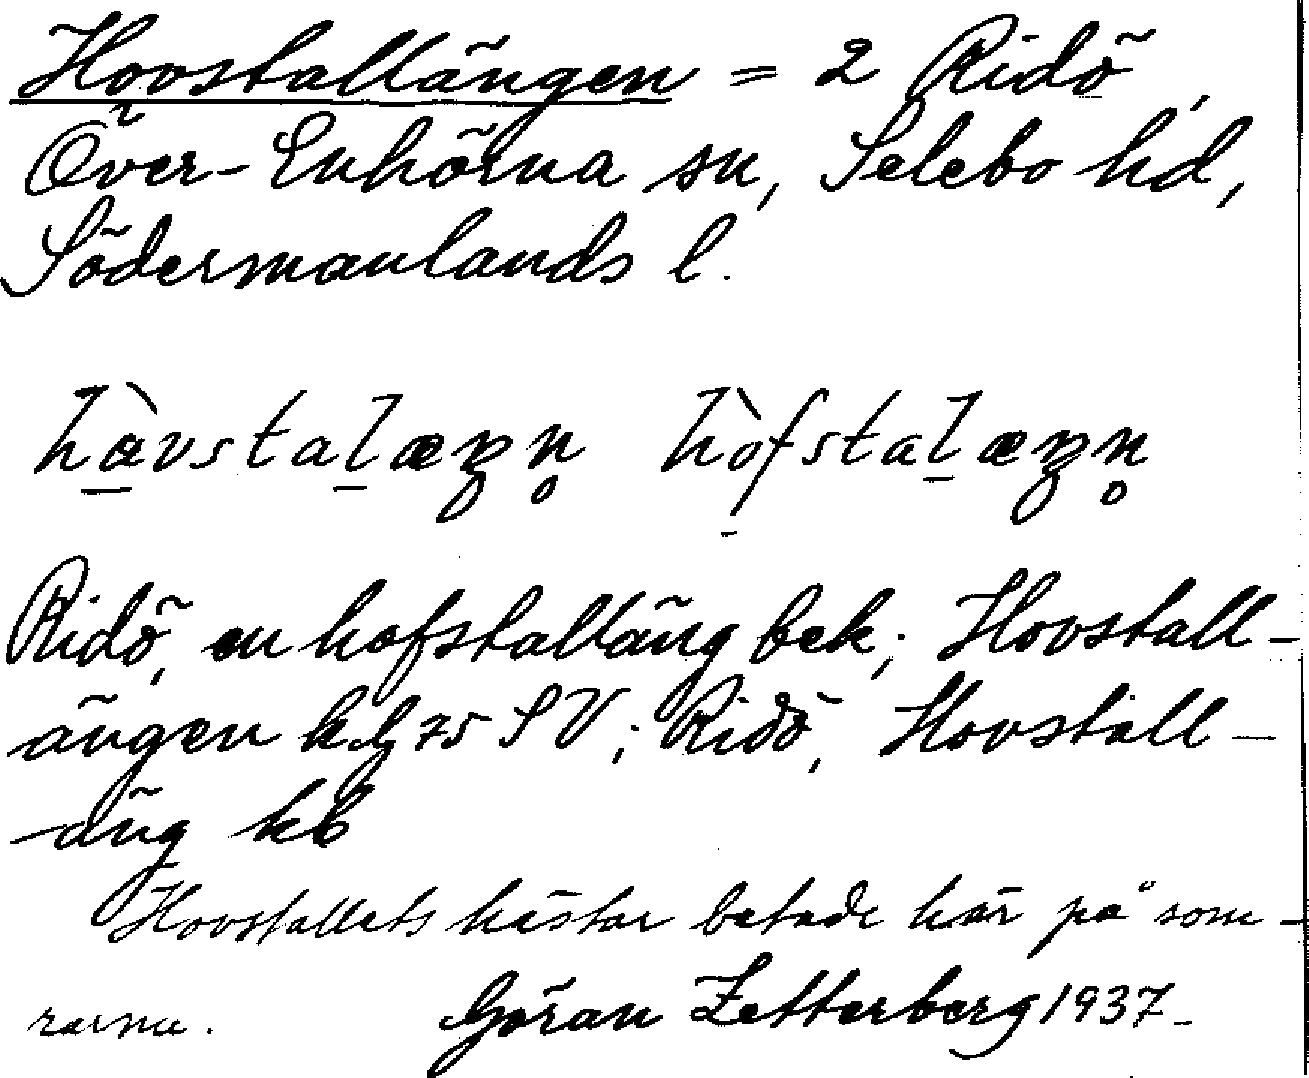 Hovstallängen = 2 Ridö,
Över-Enhörna sn, Selebo hd,
Södermanlands l.
hàvstalæŋn̥ hòfstalæŋn̥
Ridö, en hofstalläng bek; Hovstall-
ängen kg 75 SV; Ridö, Hovstall-
äng kb
Hovstallets hästar betade här på som-
rarna. Göran Zetterberg 1937